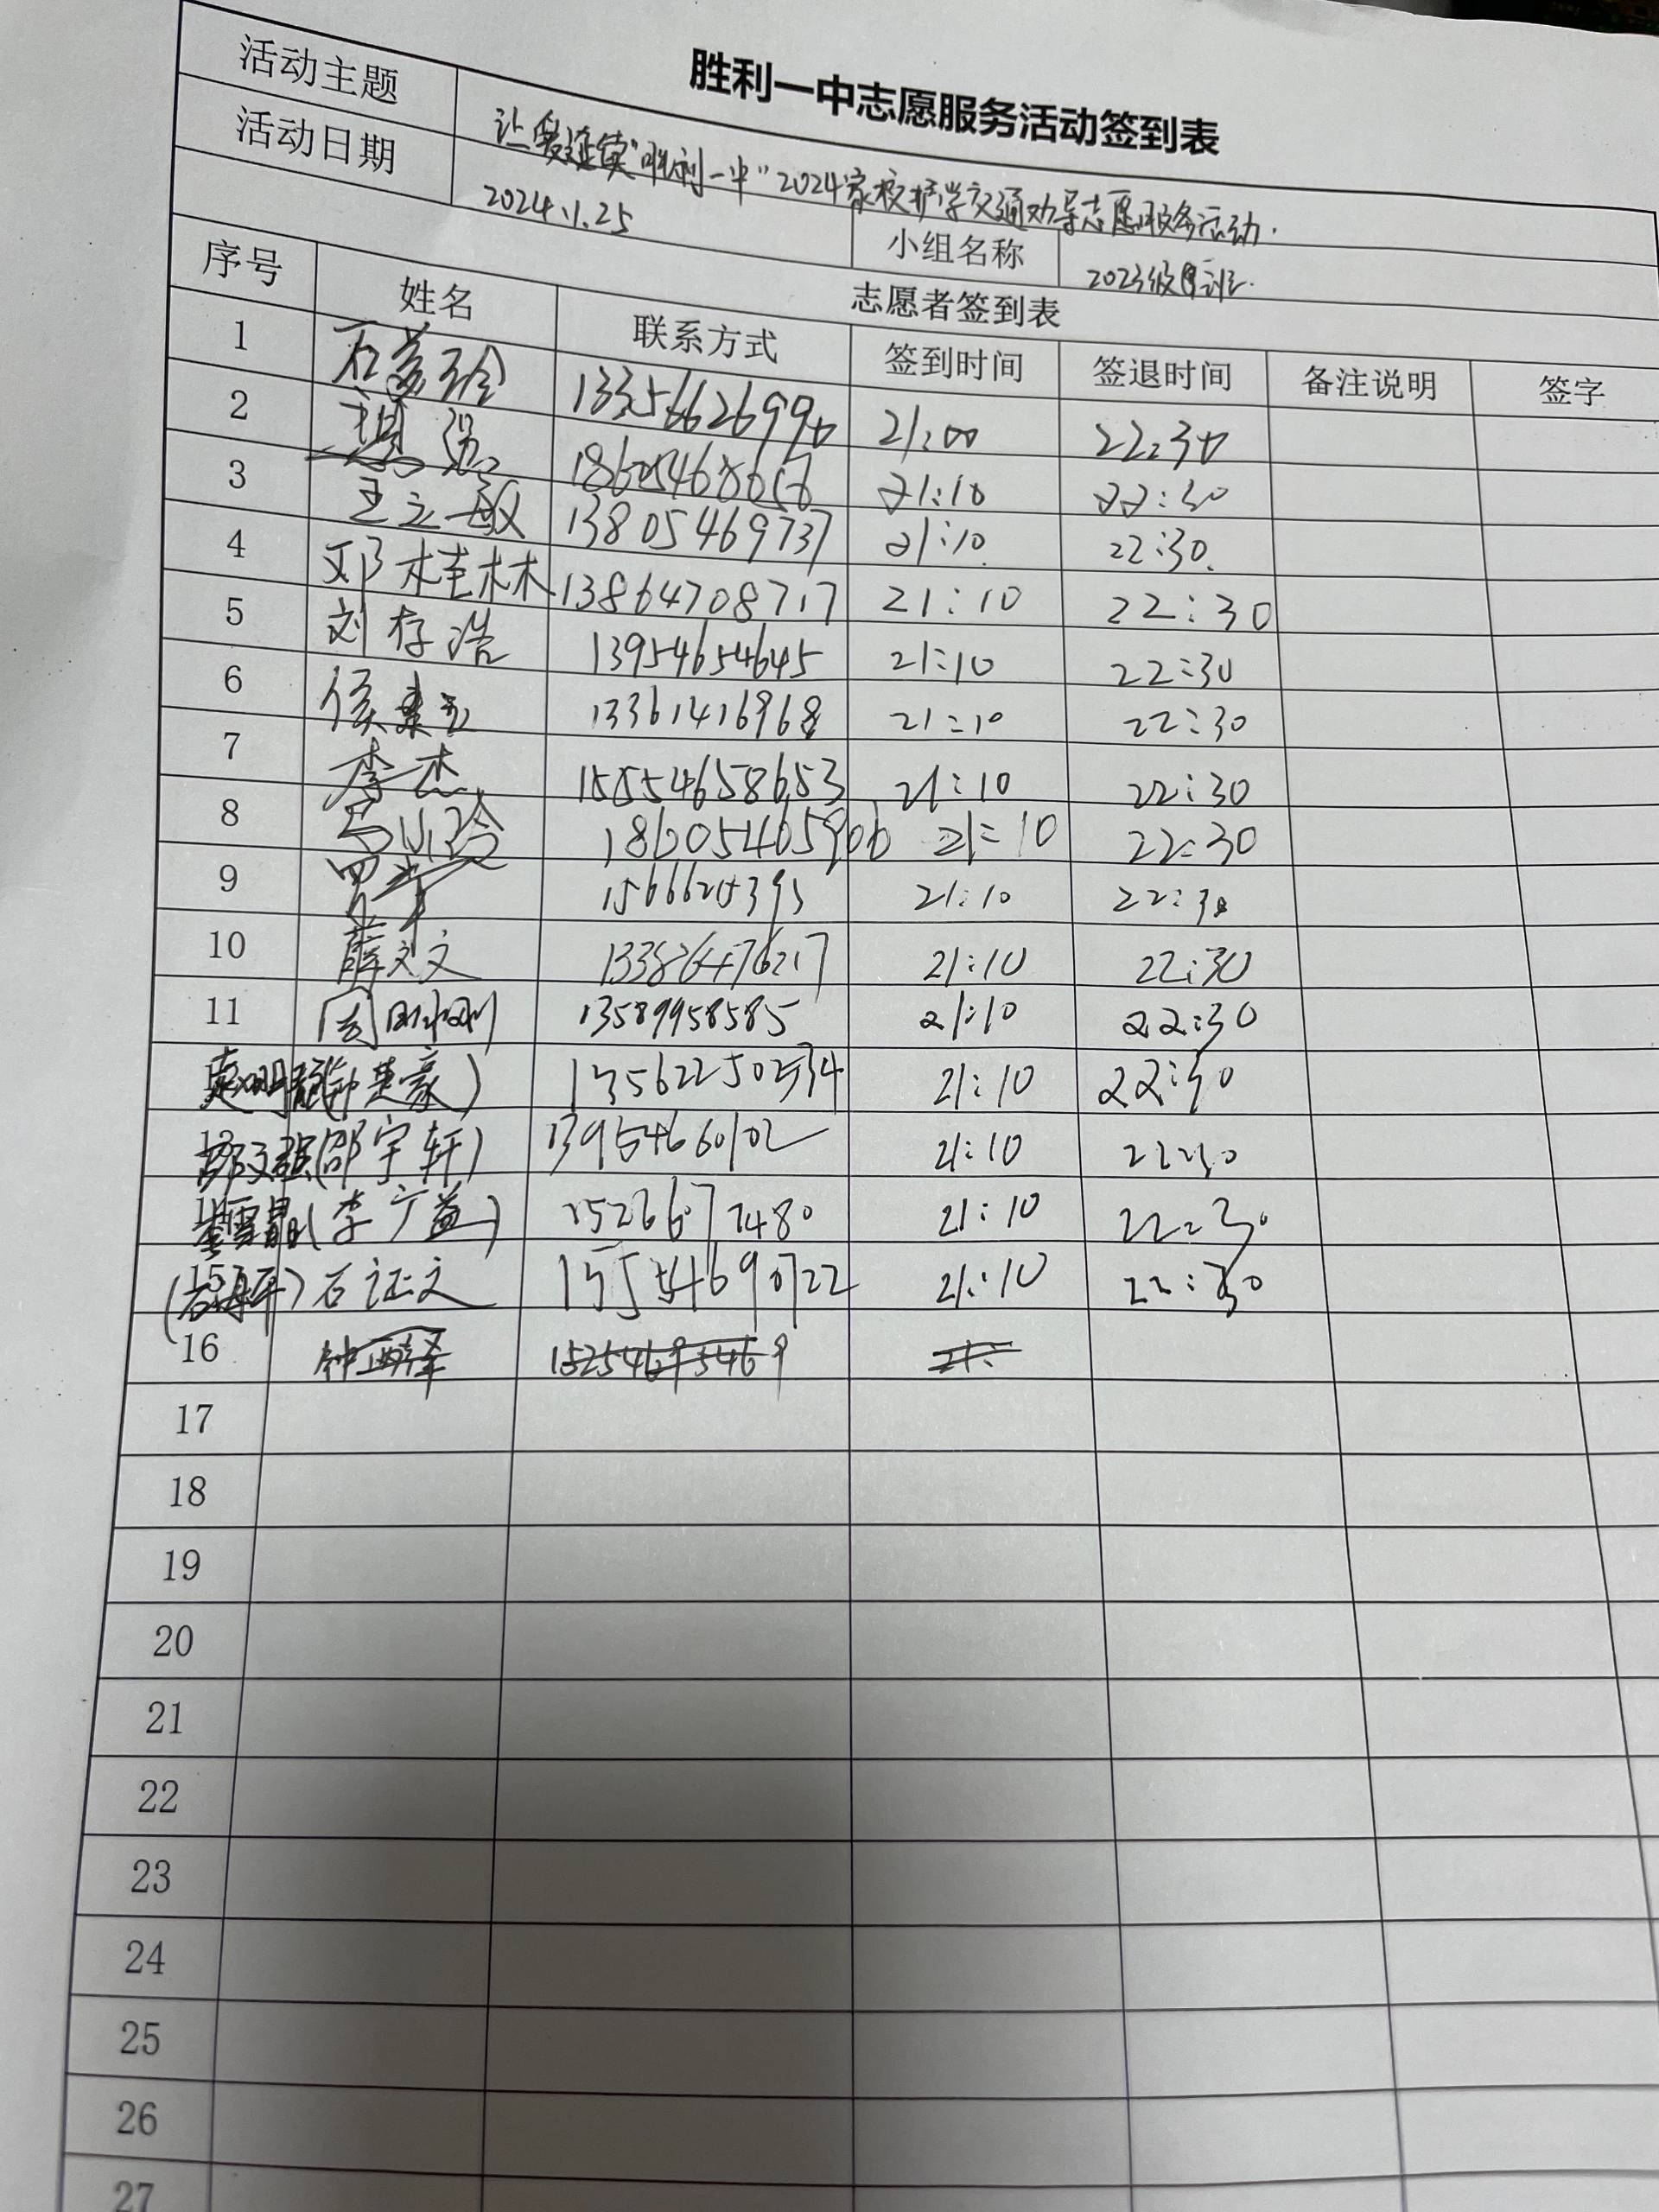 胜利一中志愿服务活动签到表
活动主题 让爱延续"胜利一中"2024家校护学交通劝导志愿服务活动.
活动日期 2024.1.25 小组名称 2023级 班.
志愿者签到表
序号 姓名 联系方式 签到时间 签退时间 备注说明 签字
1 石 玲 1335662699 21:00 22:30
2 21:10 22:30
3 王立敏 13805469737 21:10 22:30.
4 邓桂林 13864708717 21:10 22:30
5 刘存浩 13954654645 21:10 22:30
6 侯 玉 13361416968 21:10 22:30
7 李杰 15554658653 21:10 22:30
8 马小玲 18605465906 21:10 22:30
9 21:10 22:30
10 薛文文 21:10 22:30
11 周 刚 13589958585 21:10 22:30
赵明 ( 楚豪) 21:10 22:30
邵文强(邵宇轩) 13954660102 21:10 22:30
李 晶(李广益) 15266077480 21:10 22:30
15 ( ) 石证文 21:10 22:30
16 钟 泽 15254695469 21:
17
18
19
20
21
22
23
24
25
26
27